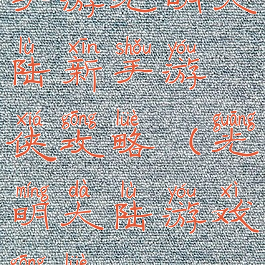 lù xīn shǒu yóu
陆新手游
xiá gōng lüè guāng
诀攻略（光
míng dà lù yóu xì
明大陆游戏
gōng lüè